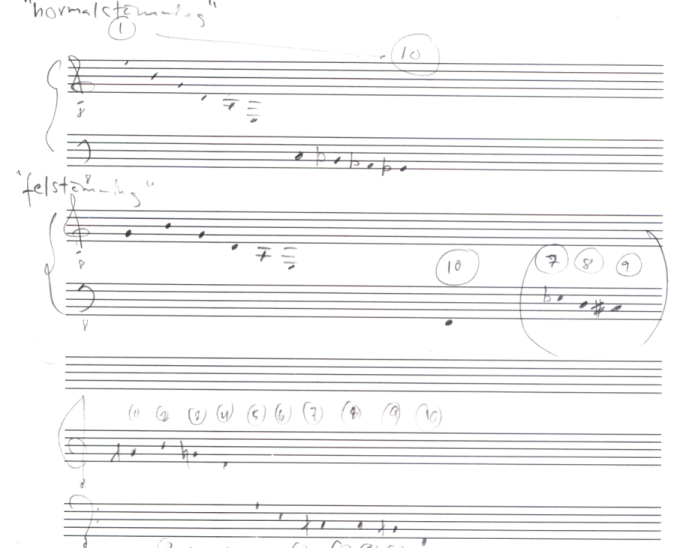 "normalstämning"
1 10
8
8
"felstämning"
8
10 7 8 9
8
(1) (2) (3) (4) (5) (6) (7) (8) (9) (10)
8
8